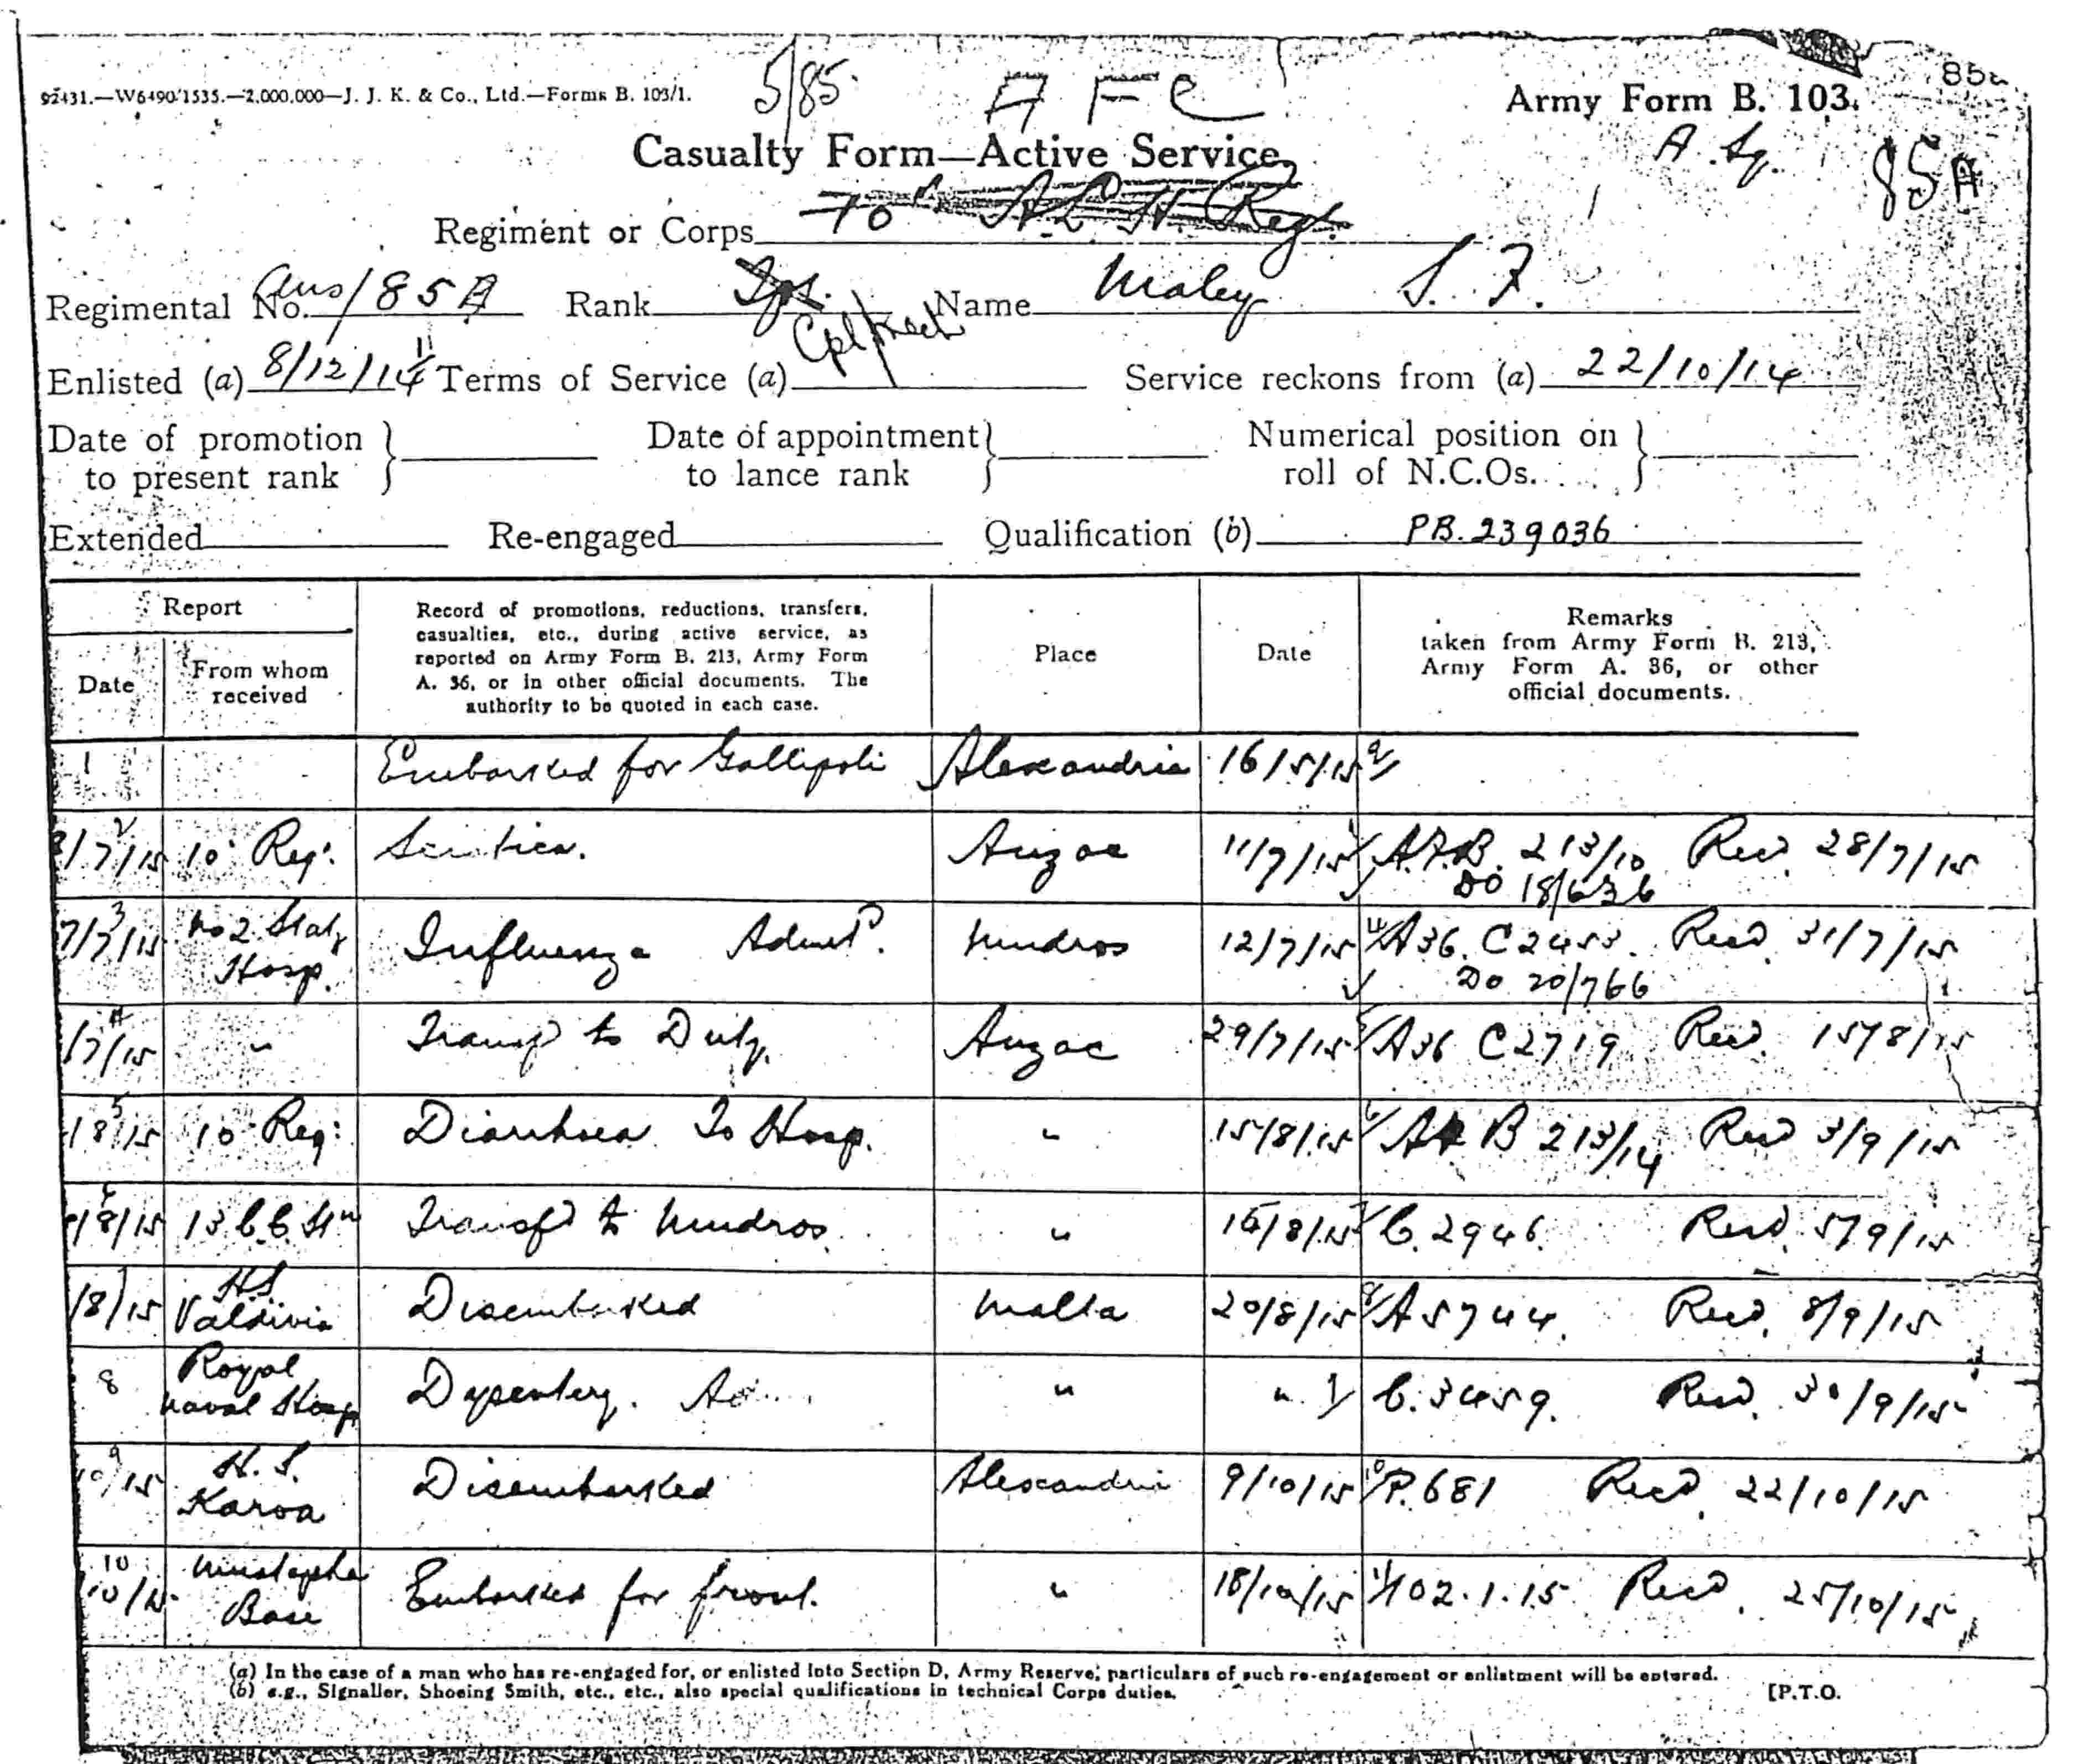 92431.—W6490/1535.—2,000,000—J. J. K. & Co., Ltd.—Forms B. 103/1.
5/85
A F C
Army Form B. 103.
85A
Casualty Form—Active Service.
A. Sq.
Regiment or Corps 10th A.L.H. Reg.
Regimental No. Aus/85A Rank Cpl/Mech Name Maley S. F.
Enlisted (a) 8/12/14 Terms of Service (a) Service reckons from (a) 22/10/14
Date of promotion to present rank } Date of appointment to lance rank } Numerical position on roll of N.C.Os. }
Extended Re-engaged Qualification (b) PB.239036
Report
Date
From whom received
Record of promotions, reductions, transfers, casualties, etc., during active service, as reported on Army Form B. 213, Army Form A. 36, or in other official documents. The authority to be quoted in each case.
Place
Date
Remarks taken from Army Form B. 213, Army Form A. 36, or other official documents.
1 Embarked for Gallipoli Alexandria 16/5/15
2 /7/15 10 Reg. Anzac 11/7/15 A.F.B. 213/10 Recd. 28/7/15
DO 18/636
3 7/7/15 No 2 Staty Hosp. Influenza Admtd. Mudros 12/7/15 A36. C2453. Recd 31/7/15
DO 20/766
4 /7/15 " Transfd to Duty. Anzac 29/7/15 A36 C2719 Recd. 15/8/15
5 /8/15 10 Reg: Diarrhoea To Hosp. " 15/8/15 B 213/14 Recd 3/9/15
6 /8/15 13 C.C. Stn Transfd to Mudros " /8/15 C.2946. Recd. 5/9/15
7 /8/15 H.S. Valdivia Disembarked Malta 20/8/15 A5744. Recd. 8/9/15
8 Royal Naval Hosp Dysentery. Ad " " C.3459. Recd. 30/9/15
9 10/15 H.S. Karoa Disembarked Alexandria 9/10/15 P.681 Recd. 22/10/15
10 10/15 Mustapha Base Embarked for front. " 18/10/15 102.1.15 Recd. 25/10/15
(a) In the case of a man who has re-engaged for, or enlisted into Section D, Army Reserve, particulars of such re-engagement or enlistment will be entered.
(b) e.g., Signaller, Shoeing Smith, etc., etc., also special qualifications in technical Corps duties.
[P.T.O.